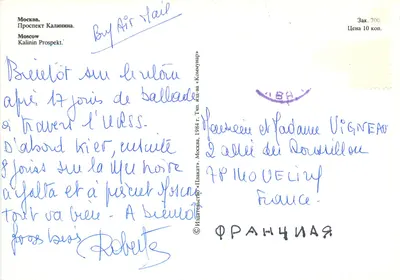 Москва.
Проспект Калинина.
Moscow
Kalinin Prospekt.
By Air Mail
Зак. 706
Цена 10 коп.
Bientôt sur le retour
après 17 jours de ballade
à travers l'URSS.
D'abord Kiev, ensuite
8 jours sur la Mer noire
à Yalta et à présent Moscou
tout va bien. A bientôt
gros bises
Roberte
© Издательство «Плакат». Москва, 1984 г. Тип. изд-ва «Коммунар»
Monsieur et Madame VIGNEAU
2 allée du Roussillon
France.
ФРАНЦИЯ